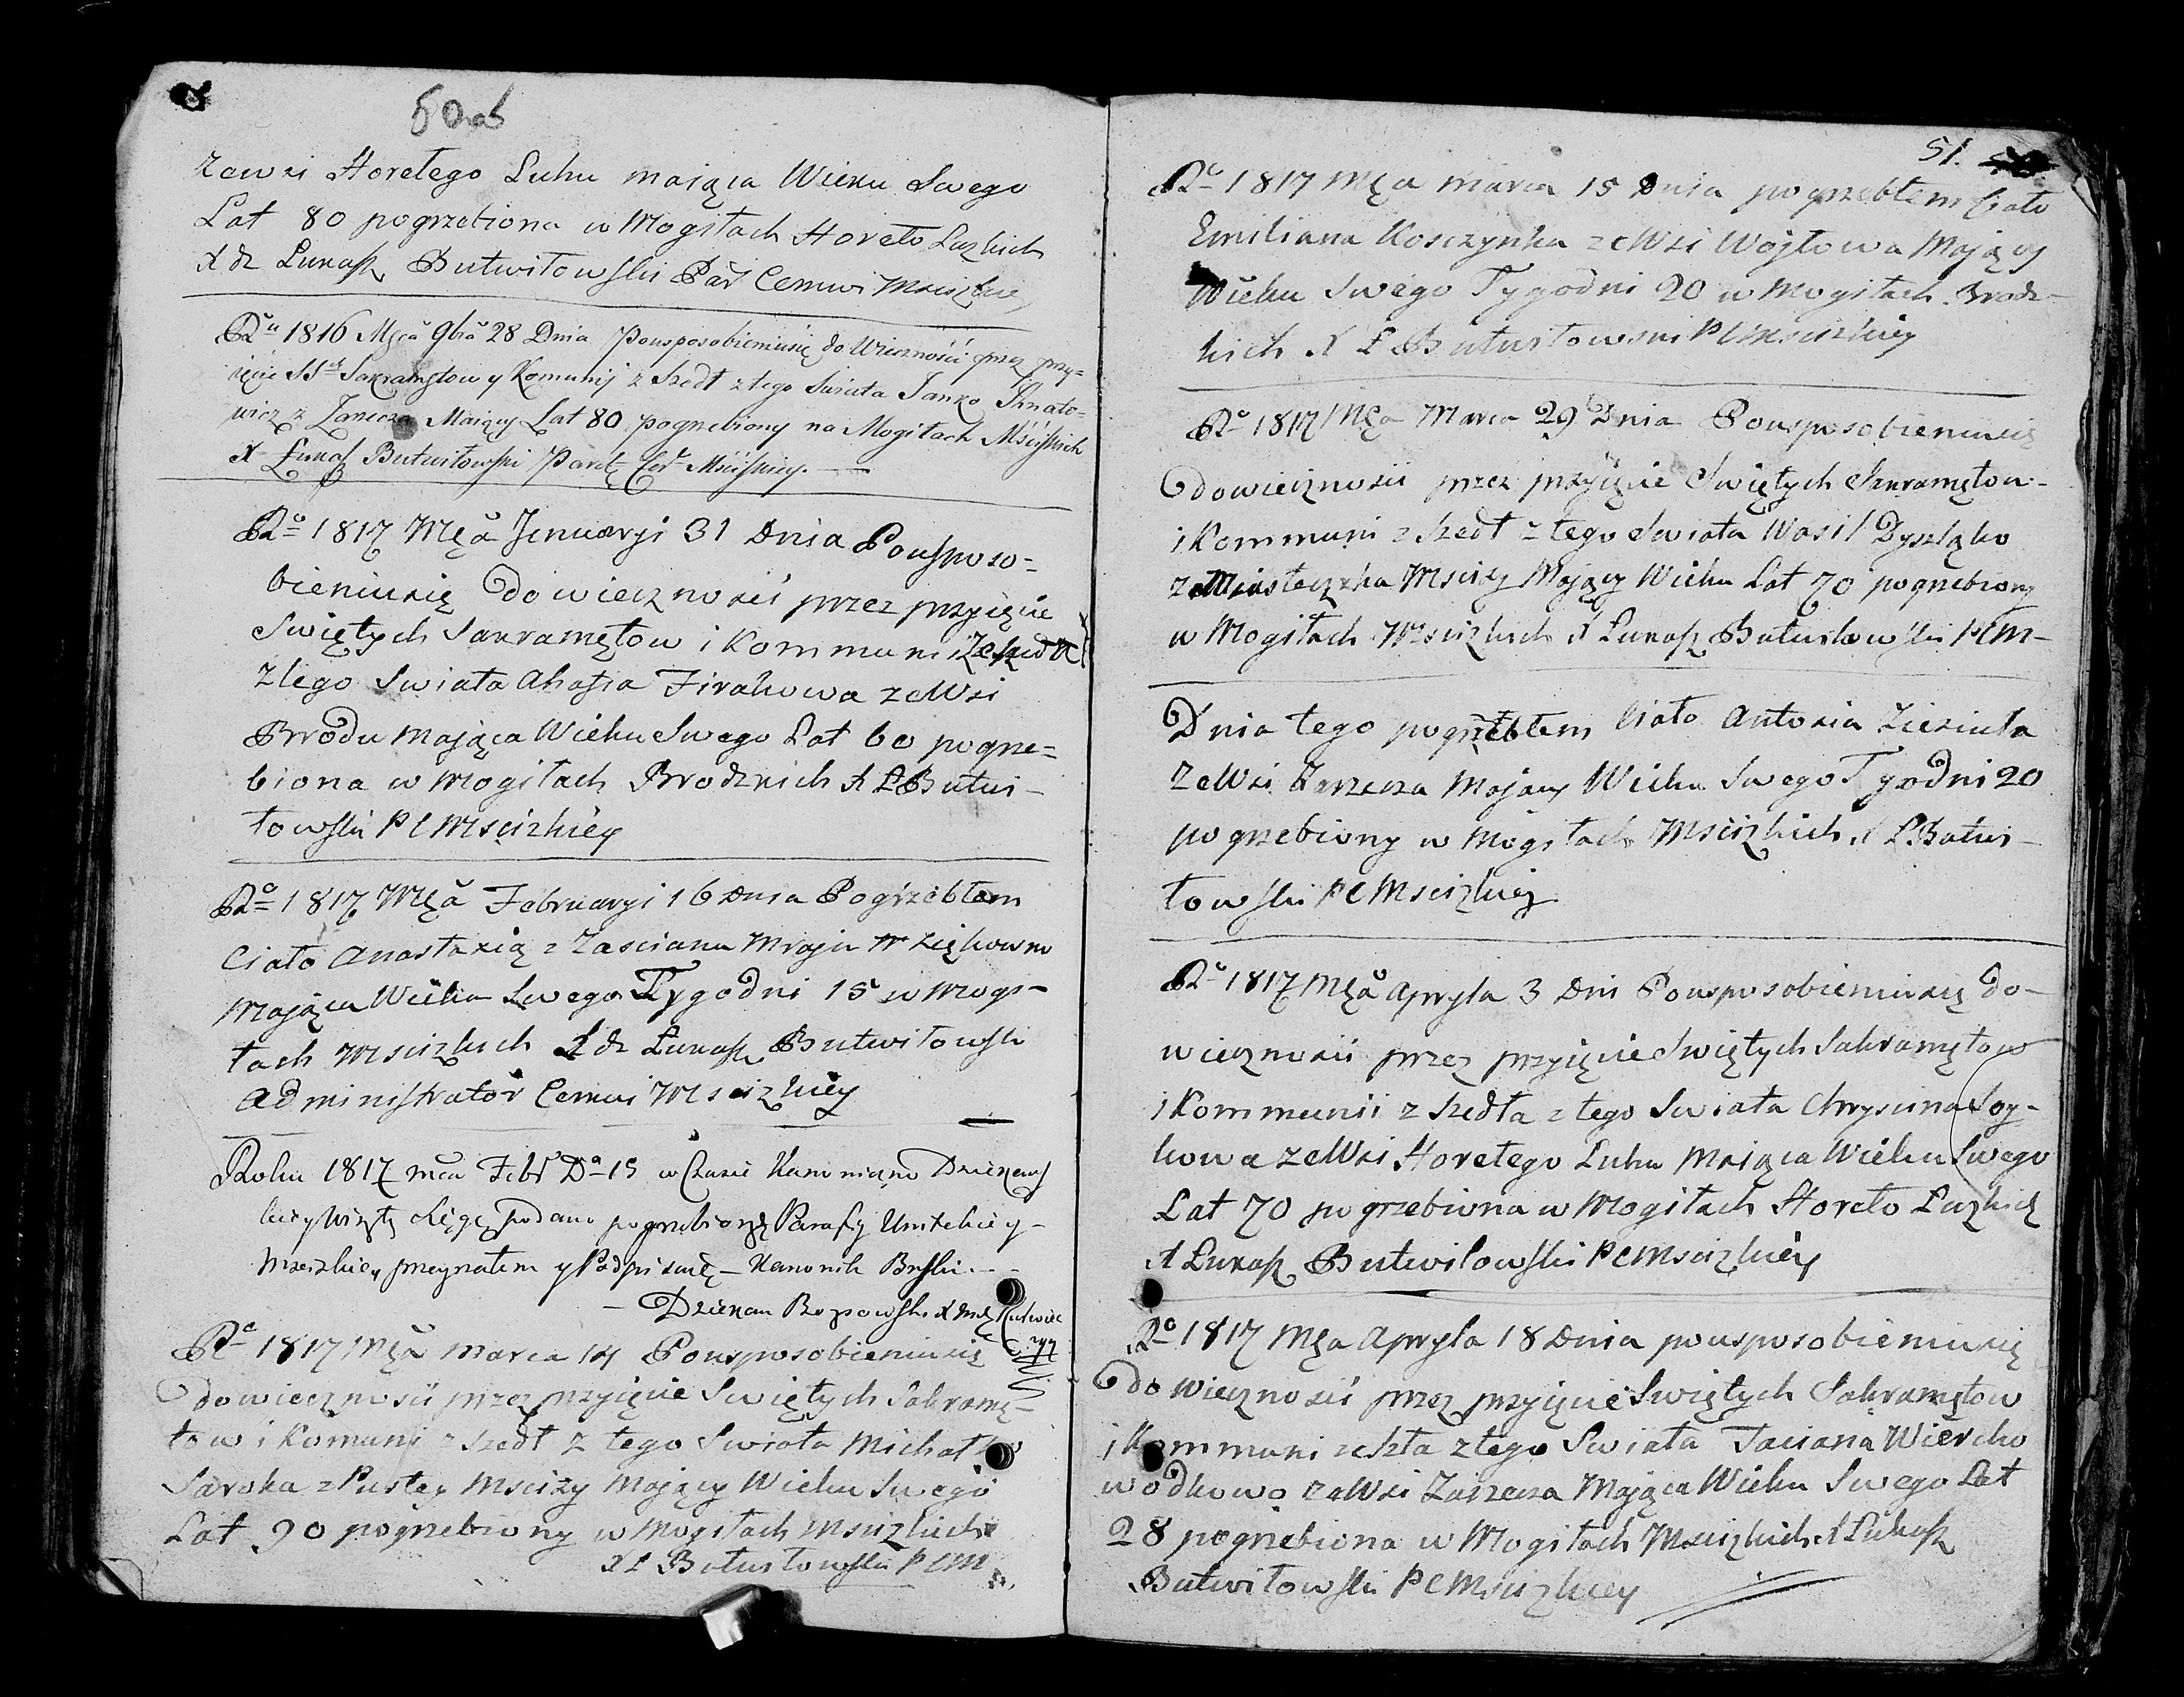 50 ob
zewsi Horełego Luhu maiąca Wieku Swego
Lat 80 pogrzebiona w Mogiłach Horeło Luzkich
X dz Łukasz Butwiłowski Par Cerkwi Mscizkiey
Ru 1816 Mca 9bra 28 Dnia Pousposobieniusię do Wieczności przez przy=
ięcie SSch Sakramętow y Komunij z Szedł z tego Swiata Janko Ihnato=
wicz z Zarecza Maiący Lat 80 pogrzebiony na Mogiłach Mściskich
X Łukasz Butwiłowski Par Cer Mściskiey.
Ro 1817 Mca Jenuaryi 31 Dnia Pousposo=
bieniusię do wieczności przez przyięcie
Swiętych Sakramętow i Kommuni Zeszedła
z tego Swiata Ahasia Firahowa ze Wsi
Brodu mająca Wieku Swego Lat 60 pogrze=
biona w Mogiłach Brodzkich X Ł Butwi-
łowski P C Mscizkiey
Ro 1817 Mca Februaryi 16 Dnia Pogrzebłem
Ciało Anastazią z Zascianu Mraju
Mająca Wieku Swego Tygodni 15 w Mogi-
łach Mscizkich X dz Łukasz Butwiłowski
Administrator Cerkwi Mscizkiey
Roku 1817 mca Febr Da 15 w Czasie
podane pogrzebione Parafij Unitskiey
Mscizkiey przeyrzałem y Podpisuię – Kanonik Brzski
– Dziekan
Ro 1817 Mca Marca 14 Pousposobieniusię
do wieczności przez przyięcie Swiętych Sakramę-
tow i Komunij z Szedł z tego Swiata Michał
Saroka z Pustey Mscizy Mający Wieku Swego
Lat 90 pogrzebiony w Mogiłach Mscizkich
X Ł Butwiłowski P C M
51.
Ro 1817 Mca Marca 15 Dnia pogrzebłem Ciało
Emiliana Kosczynka ze Wsi Wojtowa Mający
Wieku Swego Tygodni 20 w Mogiłach Brodz-
kich X Ł Butwiłowski P C Mscizkiey
Ro 1817 Mca Marca 29 Dnia Pousposobieniusię
do wieczności przez przyięcie Swiętych Sakramętow-
i Kommuni z Szedł z tego Swiata Wasil Dyszląko
z Miasteczka Mscizy Mający Wieku Lat 70 pogrzebiony
w Mogiłach Mscizkich X Łukasz Butwiłowski P C M-
Dnia tego pogrzebłem Ciało Antosia Zieziula
ze Wsi Zarzecza Mający Wieku Swego Tygodni 20
pogrzebiony w Mogiłach Mscizkich X Ł Butwi-
łowski P C Mscizkiey
Ro 1817 Mca Apryla 3 Dni Pousposobieniusię do-
wieczności przez przyięcie Swiętych Sakramętow
i Kommunii z Szedła z tego Swiata Chrysina Soy-
kowa ze Wsi Horełego Luhu Maiąca Wieku Swego
Lat 70 pogrzebiona w Mogiłach Horeło Luzkich
X Łukasz Butwiłowski P C Mscizkiey
Ro 1817 Mca Apryla 18 Dnia pousposobieniusię
do wieczności przez przyięcie Swiętych Sakramętow
i Kommuni zeszła z tego Swiata Taciana Wiercho
wodkowo ze Wsi Zarzecza Mająca Wieku Swego Lat
28 pogrzebiona w Mogiłach Mscizkich X Łukasz
Butwiłowski P C Mscizkiey